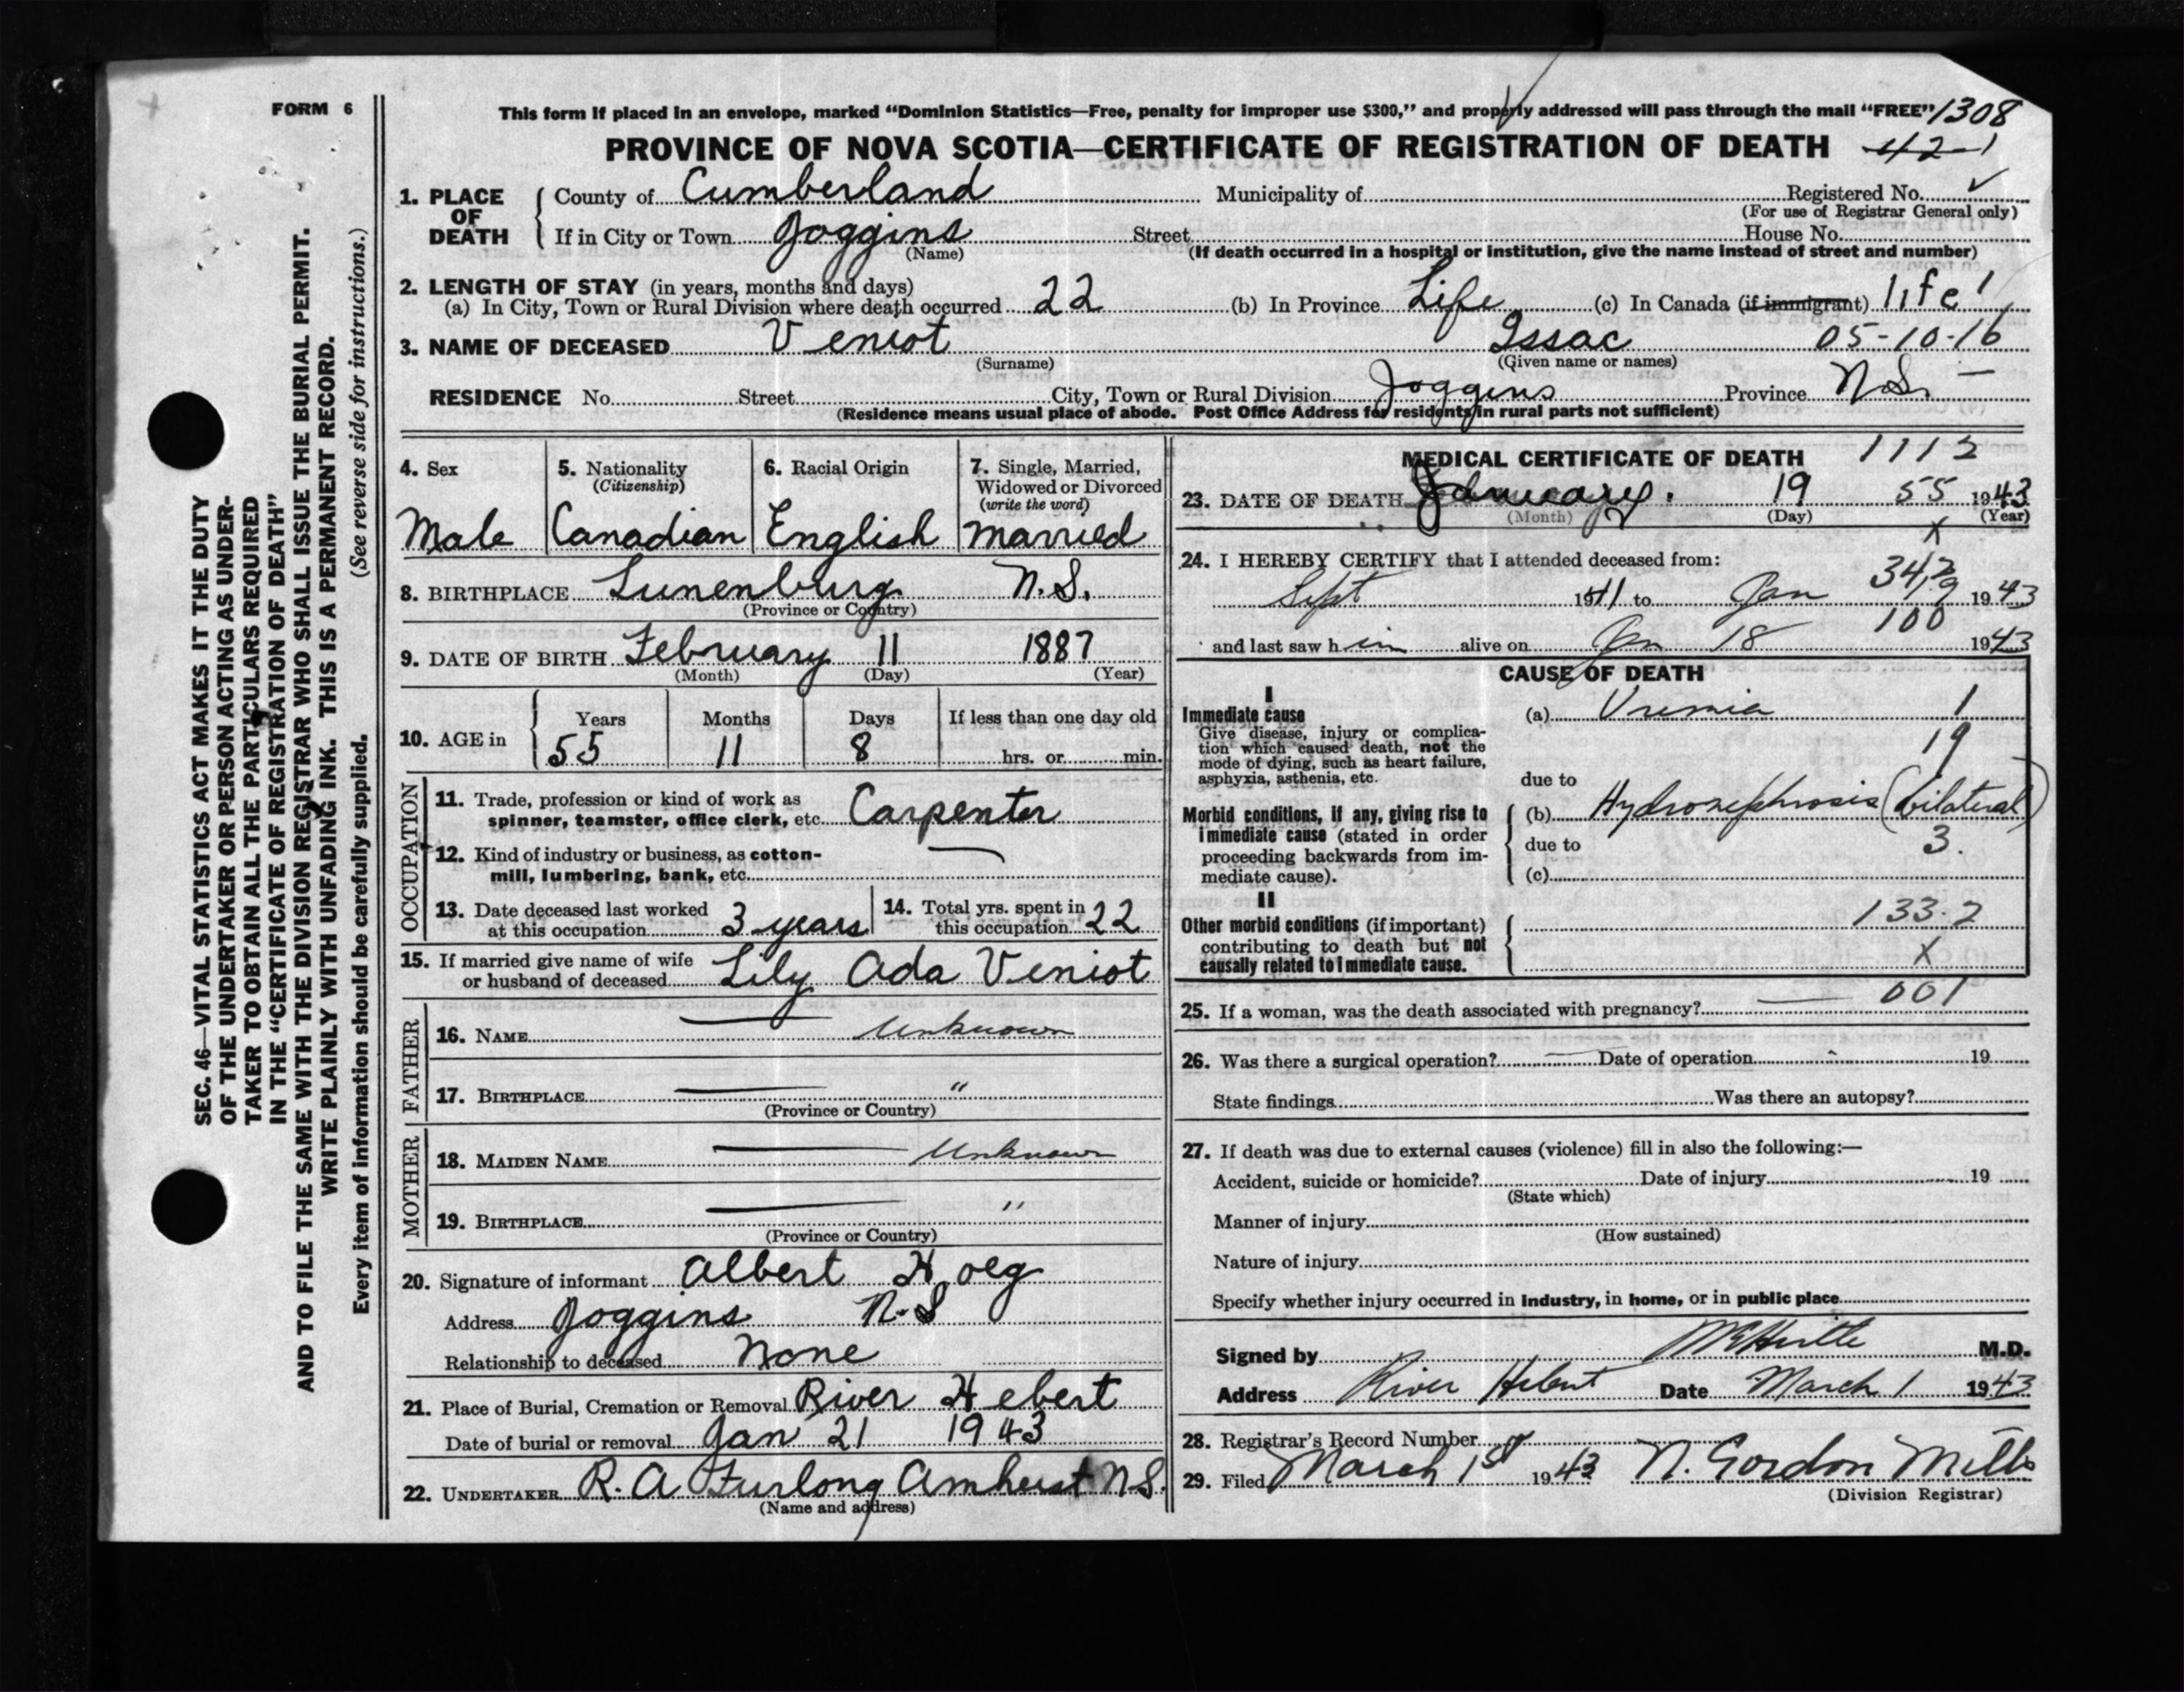 FORM 6
This form if placed in an envelope, marked “Dominion Statistics—Free, penalty for improper use $300,” and properly addressed will pass through the mail “FREE” 1308
PROVINCE OF NOVA SCOTIA—CERTIFICATE OF REGISTRATION OF DEATH 42-1
1. PLACE OF DEATH { County of Cumberland Municipality of Registered No. ✓
(For use of Registrar General only)
If in City or Town Joggins Street House No.
(Name) (If death occurred in a hospital or institution, give the name instead of street and number)
2. LENGTH OF STAY (in years, months and days)
(a) In City, Town or Rural Division where death occurred 22 (b) In Province Life (c) In Canada (if immigrant) life 1
3. NAME OF DECEASED Veniot Issac 05-10-16
(Surname) (Given name or names)
RESIDENCE No. Street City, Town or Rural Division Joggins Province N.S. —
(Residence means usual place of abode. Post Office Address for residents in rural parts not sufficient)
4. Sex 5. Nationality (Citizenship) 6. Racial Origin 7. Single, Married, Widowed or Divorced (write the word)
Male Canadian English Married
8. BIRTHPLACE Lunenburg N.S.
(Province or Country)
9. DATE OF BIRTH February 11 1887
(Month) (Day) (Year)
10. AGE in { Years Months Days If less than one day old
55 11 8 hrs. or min.
OCCUPATION
11. Trade, profession or kind of work as
spinner, teamster, office clerk, etc. Carpenter
12. Kind of industry or business, as cotton-
mill, lumbering, bank, etc. —
13. Date deceased last worked
at this occupation 3 years
14. Total yrs. spent in
this occupation 22
15. If married give name of wife
or husband of deceased Lily Ada Veniot
FATHER
16. NAME — Unknown
17. BIRTHPLACE — "
(Province or Country)
MOTHER
18. MAIDEN NAME — Unknown
19. BIRTHPLACE — "
(Province or Country)
20. Signature of informant Albert Hoeg
Address Joggins N-S
Relationship to deceased None
21. Place of Burial, Cremation or Removal River Hebert
Date of burial or removal Jan 21 1943
22. UNDERTAKER R. A Furlong Amherst N S.
(Name and address)
MEDICAL CERTIFICATE OF DEATH 1112
23. DATE OF DEATH January. 19 55 1943
(Month) (Day) (Year)
X
24. I HEREBY CERTIFY that I attended deceased from:
Sept 1941 to Jan 1943
100
and last saw h im alive on Jan 18 1943
CAUSE OF DEATH
I
Immediate cause
Give disease, injury or complica-
tion which caused death, not the
mode of dying, such as heart failure,
asphyxia, asthenia, etc.
(a) Uremia 1
19
due to
Morbid conditions, if any, giving rise to
immediate cause (stated in order
proceeding backwards from im-
mediate cause).
(b) Hydronephrosis (bilateral)
due to 3.
(c)
II
Other morbid conditions (if important)
contributing to death but not
causally related to immediate cause.
133.2
X
25. If a woman, was the death associated with pregnancy? — 001
26. Was there a surgical operation? — Date of operation 19
State findings Was there an autopsy?
27. If death was due to external causes (violence) fill in also the following:—
Accident, suicide or homicide? Date of injury 19
(State which)
Manner of injury
(How sustained)
Nature of injury
Specify whether injury occurred in industry, in home, or in public place
Signed by M.D.
Address River Hebert Date March 1 1943
28. Registrar's Record Number
29. Filed March 1st 1943 N. Gordon Mills
(Division Registrar)
SEC. 46—VITAL STATISTICS ACT MAKES IT THE DUTY
OF THE UNDERTAKER OR PERSON ACTING AS UNDER-
TAKER TO OBTAIN ALL THE PARTICULARS REQUIRED
IN THE “CERTIFICATE OF REGISTRATION OF DEATH”
AND TO FILE THE SAME WITH THE DIVISION REGISTRAR WHO SHALL ISSUE THE BURIAL PERMIT.
WRITE PLAINLY WITH UNFADING INK. THIS IS A PERMANENT RECORD.
Every item of information should be carefully supplied. (See reverse side for instructions.)